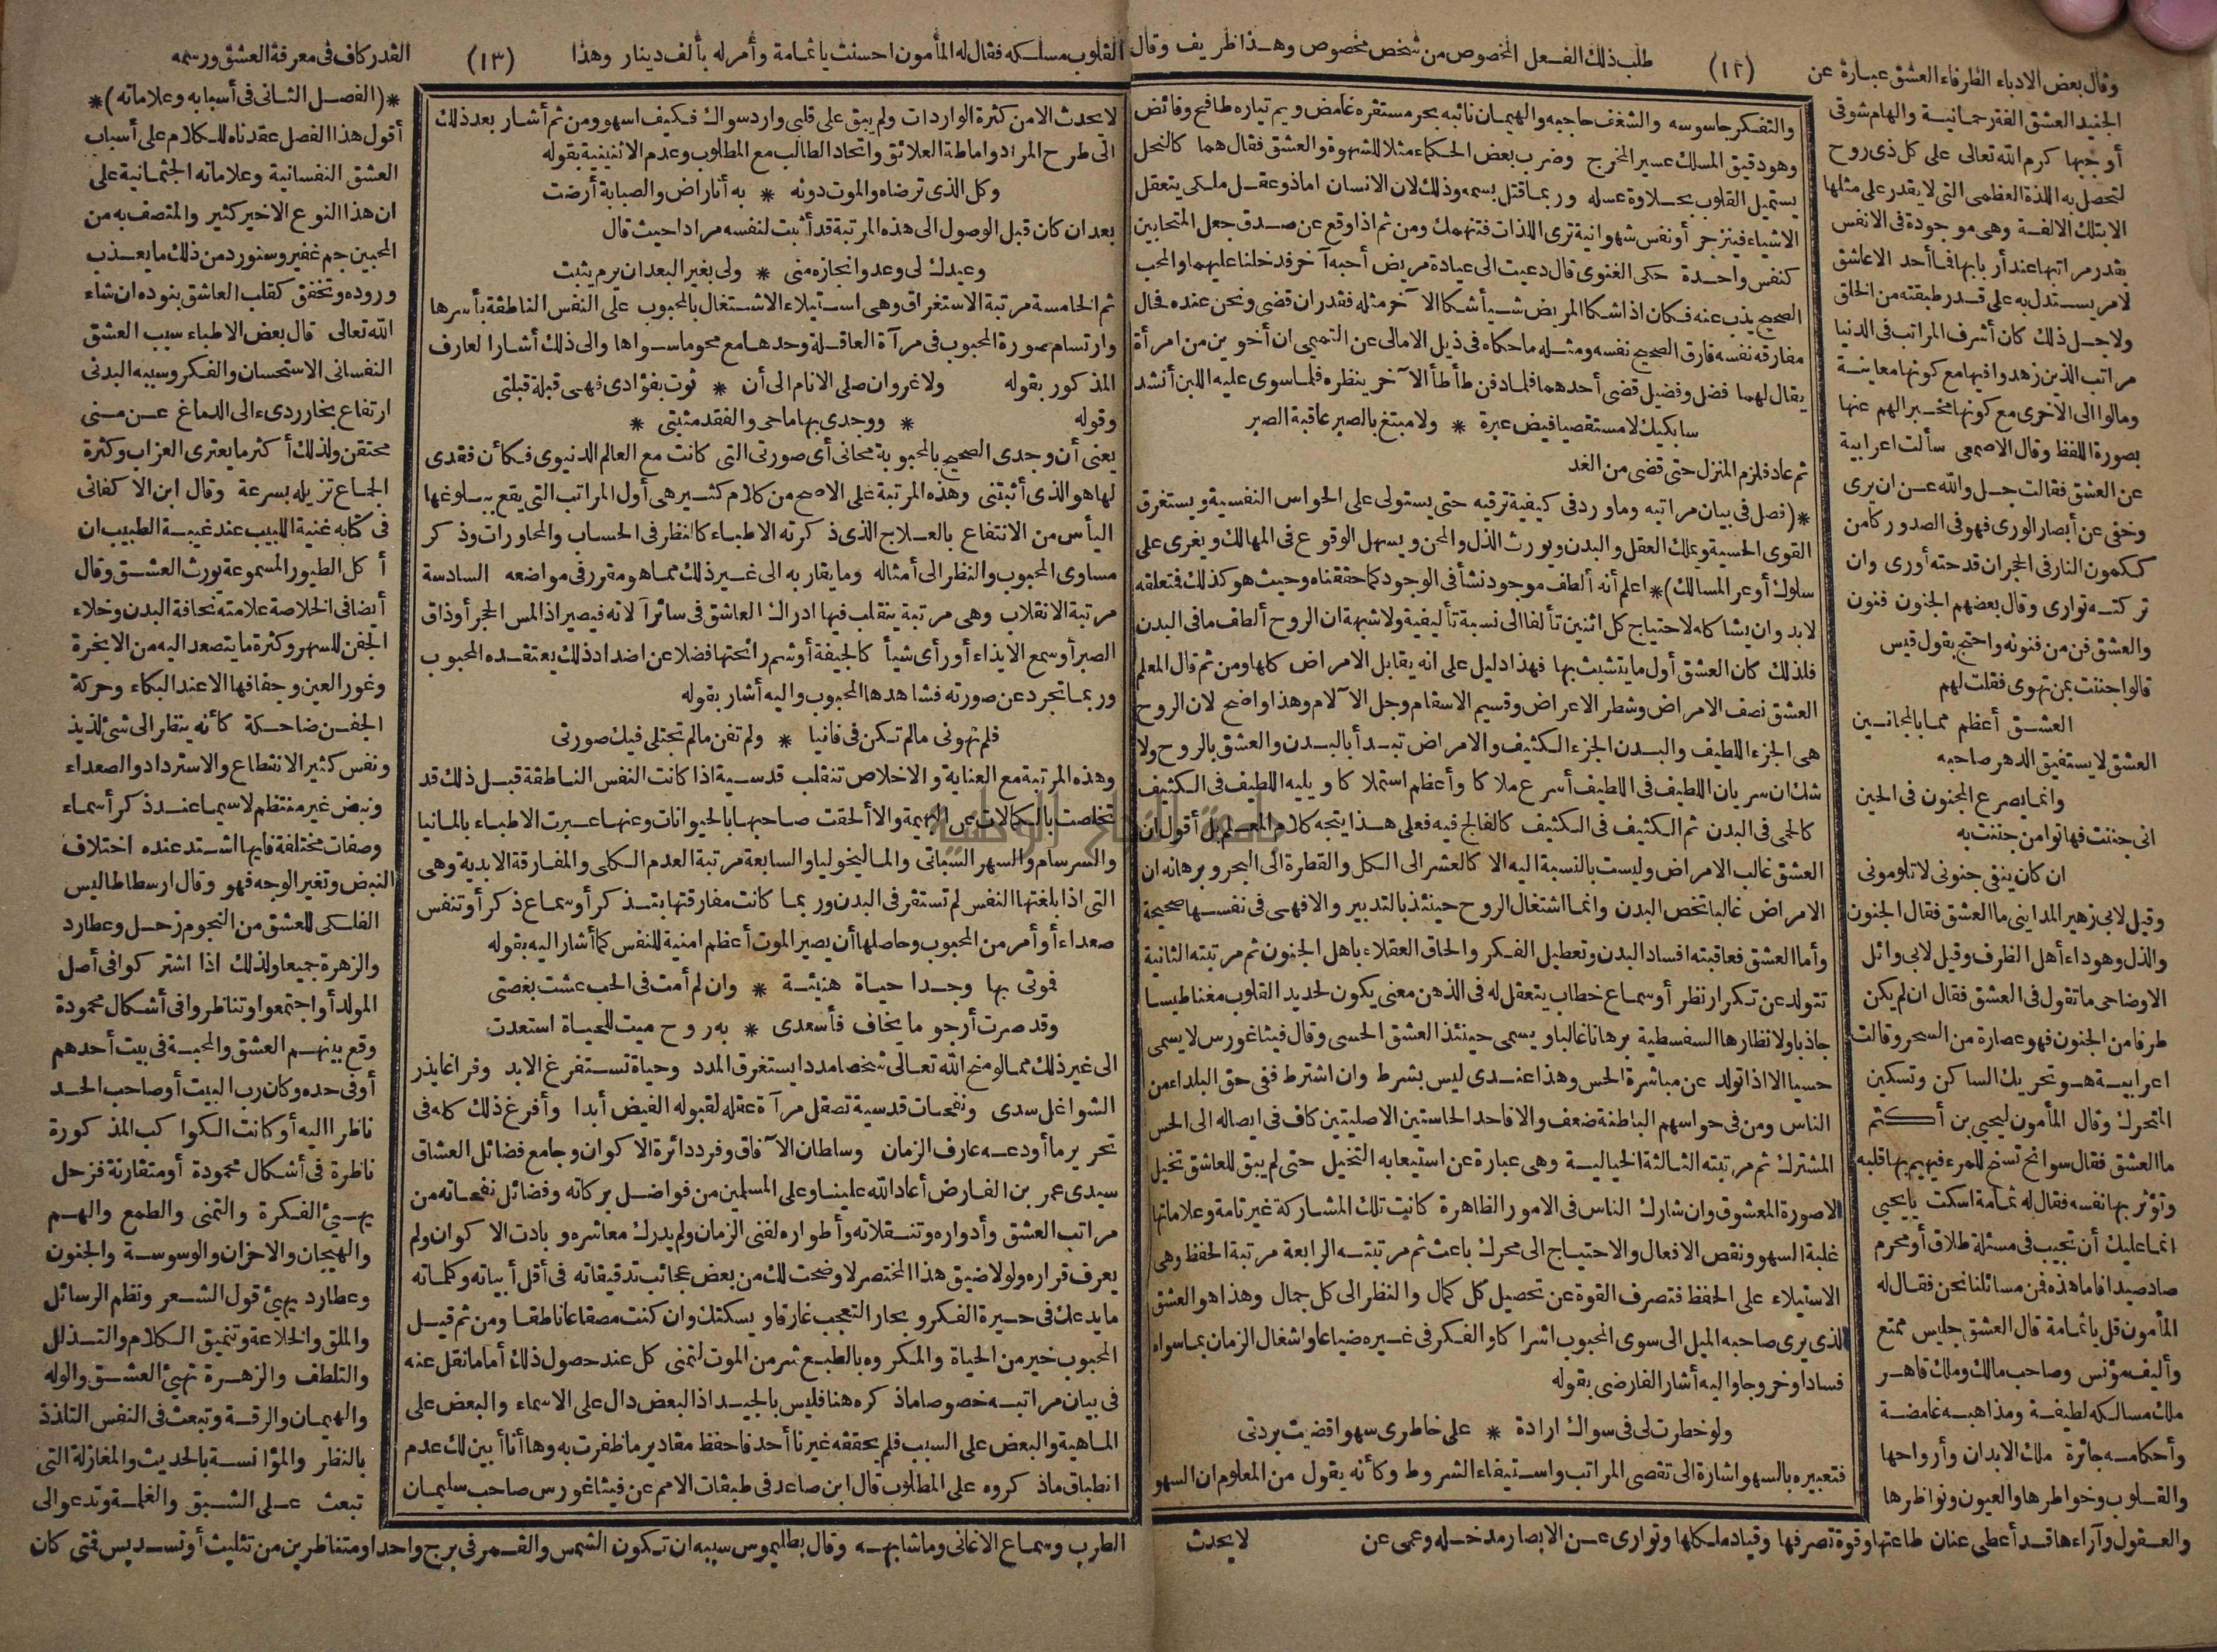 طلب ذلك الفعل المخصوص من شخص مخصوص وهذا ظريف وقال
(١٢)
وقال بعض الادباء الظرفاء العشق عبارة عن
والتفكر جاسوسه والشغف حاجبه والهيمان نائبه بحر مستقره غامض ويم تياره طافح وفائض
وهو دقيق المسلك عسير المخرج وضرب بعض الحكماء مثلا للشهوة والعشق فقال هما كالنحل
يستميل القلوب بحلاوة عسله وربما قتل بسمه وذلك لان الانسان اما ذو عقل ملكي يتعقل
الاشياء فينزجر أو نفس شهوانية ترى اللذات فتنهمك ومن ثم اذا وقع عن صدق جعل المتحابين
كنفس واحدة حكى الغنوى قال دعيت الى عيادة مريض أحبه آخر فدخلنا عليهما والمحب
الصحيح يذب عنه فكان اذا شكا المريض شيأ شكا الآخر مثله فقدر ان قضى ونحن عنده فحال
مفارقه نفسه فارق الصحيح نفسه ومثله ما حكاه فى ذيل الامالى عن التميمى ان أخوين من امرأة
يقال لهما فضل وفضيل قضى أحدهما فلما دفن طأطأ الآخر ينظره فلما سوى عليه اللبن أنشد
سابكيك لا مستقصيا فيض عبرة * ولا مبتغ بالصبر عاقبة الصبر
ثم عاد فلزم المنزل حتى قضى من الغد
*(فصل فى بيان مراتبه وما ورد فى كيفية ترقيه حتى يستولى على الحواس النفسية ويستغرق
القوى الحسية ويملك العقل والبدن ويورث الذل والمحن ويسهل الوقوع فى المهالك ويغرى على
سلوك أوعر المسالك)* اعلم أنه ألطف موجود نشأ فى الوجود كما حققناه وحيث هو كذلك فتعلقه
لابد وان يشاكله لاحتياج كل اثنين تألفا الى نسبة تأليفية ولا شبهة ان الروح ألطف ما فى البدن
فلذلك كان العشق أول ما يتشبث بها فهذا دليل على انه يقابل الامراض كلها ومن ثم قال المعلم
العشق نصف الامراض وشطر الاعراض وقسيم الاسقام وجل الآلام وهذا واضح لان الروح
هى الجزء اللطيف والبدن الجزء الكثيف والامراض تبدأ بالبدن والعشق بالروح ولا
شك ان سريان اللطيف فى اللطيف أسرع ملاكا وأعظم استملاكا ويليه اللطيف فى الكثيف
كالحمى فى البدن ثم الكثيف فى الكثيف كالفالج فيه فعلى هذا يتجه كلام المعلم بل أقول ان
العشق غالب الامراض وليست بالنسبة اليه الا كالعشر الى الكل والقطرة الى البحر وبرهانه ان
الامراض غالبا تخص البدن وانما اشتغال الروح حينئذ بالتدبير والافهى فى نفسها صحيحة
وأما العشق فعاقبته افساد البدن وتعطيل الفكر والحاق العقلاء باهل الجنون ثم مرتبته الثانية
تتولد عن تكرار نظر أو سماع خطاب يتعقل له فى الذهن معنى يكون لحديد القلوب مغناطيسا
جاذبا ولانظارها السفسطية برهانا غالبا ويسمى حينئذ العشق الحسى وقال فيثاغورس لا يسمى
حسيا الا اذا تولد عن مباشرة الحس وهذا عندى ليس بشرط وان اشترط ففى حق البلداء من
الناس ومن فى حواسهم الباطنة ضعف والا فاحد الحاستين الاصليتين كاف فى ايصاله الى الحس
المشترك ثم مرتبته الثالثة الخيالية وهى عبارة عن استيعابه التخيل حتى لم يبق للعاشق تخيل
الاصورة المعشوق وان شارك الناس فى الامور الظاهرة كانت تلك المشاركة غير تامة وعلاماتها
غلبة السهو ونقص الافعال والاحتياج الى محرك باعث ثم مرتبته الرابعة مرتبة الحفظ وهى
الاستيلاء على الحفظ فتصرف القوة عن تحصيل كل كمال والنظر الى كل جمال وهذا هو العشق
الذى يرى صاحبه الميل الى سوى المحبوب اشراكا والفكر فى غيره ضياعا واشغال الزمان بما سواه
فسادا وخروجا واليه أشار الفارضى بقوله
ولو خطرت لى فى سواك ارادة * على خاطرى سهوا قضيت بردتى
فتعبيره بالسهو اشارة الى تقصى المراتب واستيفاء الشروط وكأنه يقول من المعلوم ان السهو
لا يحدث
الجنيد العشق الفة رحمانية والهام شوقى
أوجبها كرم الله تعالى على كل ذى روح
لتحصل به اللذة العظمى التى لا يقدر على مثلها
الا بتلك الالفة وهى موجودة فى الانفس
بقدر مراتبها عند أربابها فما أحد الا عاشق
لامر يستدل به على قدر طبقته من الخلق
ولاجل ذلك كان أشرف المراتب فى الدنيا
مراتب الذين زهدوا فيها مع كونها معاينة
ومالوا الى الاخرى مع كونها مخبرا لهم عنها
بصورة اللفظ وقال الاصمعى سألت اعرابية
عن العشق فقالت جل والله عن ان يرى
وخفى عن أبصار الورى فهو فى الصدور كامن
ككمون النار فى الحجر ان قدحته أورى وان
تركته توارى وقال بعضهم الجنون فنون
والعشق فن من فنونه واحتج بقول قيس
قالوا جننت بمن تهوى فقلت لهم
العشق أعظم مما بالمجانين
العشق لا يستفيق الدهر صاحبه
وانما يصرع المجنون فى الحين
انى جننت فهاتوا من جننت به
ان كان ينفى جنونى لا تلومونى
وقيل لابى زهير المدايني ما العشق فقال الجنون
والذل وهو داء أهل الظرف وقيل لابى وائل
الاوضاحى ما تقول فى العشق فقال ان لم يكن
طرفا من الجنون فهو عصارة من السحر وقالت
اعرابية هو تحريك الساكن وتسكين
المتحرك وقال المأمون ليحيى بن أكثم
ما العشق فقال سوانح تسنح للمرء فيهيم بها قلبه
وتؤثر بها نفسه فقال له ثمامة اسكت يا يحيى
انما عليك أن تجيب فى مسئلة طلاق أو محرم
صاد صيدا فاما هذه فمن مسائلنا نحن فقال له
المأمون قل يا ثمامة قال العشق جليس ممتع
وأليف مؤنس وصاحب مالك وملك قاهر
ملك مسالكه لطيفة ومذاهبه غامضة
وأحكامه جائزة ملك الابدان وأرواحها
والقلوب وخواطرها والعيون ونواظرها
والعقول وآراءها قد أعطى عنان طاعتها وقوة تصرفها وقياد ملكها وتوارى عن الابصار مدخله وعمى عن
القلوب مسلكه فقال له المأمون احسنت يا ثمامة وأمر له بألف دينار وهذا
(١٣)
القدر كاف فى معرفة العشق ورسمه
لا يحدث الا من كثرة الواردات ولم يبق على قلبى وارد سواك فكيف اسهو ومن ثم أشار بعد ذلك
الى طرح المراد واماطة العلائق واتحاد الطالب مع المطلوب وعدم الاثنينية بقوله
وكل الذى ترضاه والموت دونه * به أنا راض والصبابة أرضت
بعد ان كان قبل الوصول الى هذه المرتبة قد أثبت لنفسه مرادا حيث قال
وعيدك لى وعد وانجازه منى * ولى بغير البعد ان يرم يثبت
ثم الخامسة مرتبة الاستغراق وهى استيلاء الاشتغال بالمحبوب على النفس الناطقة بأسرها
وارتسام صورة المحبوب فى مرآة العاقلة وحدها مع محو ما سواها والى ذلك أشار العارف
المذكور بقوله ولا غرو ان صلى الانام الى أن * ثوت بفؤادى فهى قبلة قبلتى
وقوله * ووجدى بها ماحى والفقد مثبتى *
يعنى أن وجدى الصحيح بالمحبوبة محانى أى صورتى التى كانت مع العالم الدنيوى فكأن فقدى
لها هو الذى أثبتنى وهذه المرتبة على الاصح من كلام كثير هى أول المراتب التى يقع ببلوغها
اليأس من الانتفاع بالعلاج الذى ذكرته الاطباء كالنظر فى الحساب والمحاورات وذكر
مساوى المحبوب والنظر الى أمثاله وما يقاربه الى غير ذلك مما هو مقرر فى مواضعه السادسة
مرتبة الانقلاب وهى مرتبة ينقلب فيها ادراك العاشق فى سائر آلاته فيصير اذا لمس الحجر أو ذاق
الصبر أو سمع الايذاء أو رأى شيأ كالجيفة أو شم رائحتها فضلا عن اضداد ذلك يعتقده المحبوب
وربما تجرد عن صورته فشاهدها المحبوب واليه أشار بقوله
فلم تهونى ما لم تكن فى فانيا * ولم تفن ما لم تجتلى فيك صورتى
وهذه المرتبة مع العناية والاخلاص تنقلب قدسية اذا كانت النفس الناطقة قبل ذلك قد
تخلصت بالكمالات عن البهيمة والا ألحقت صاحبها بالحيوانات وعنها عبرت الاطباء بالمانيا
والسرسام والسهر السباتى والماليخوليا والسابعة مرتبة العدم الكلى والمفارقة الابدية وهى
التى اذا بلغتها النفس لم تستقر فى البدن وربما كانت مفارقتها بتذكر أو سماع ذكر أو تنفس
صعداء أو أمر من المحبوب وحاصلها أن يصير الموت أعظم امنية للنفس كما أشار اليه بقوله
فموتى بها وجدا حياة هنيئة * وان لم أمت فى الحب عشت بغصتى
وقد صرت أرجو ما يخاف فأسعدى * به روح ميت للحياة استعدت
الى غير ذلك مما لو منح الله تعالى شخصا مددا يستغرق المدد وحياة تستفرغ الابد وفراغا يذر
الشواغل سدى ونفحات قدسية تصقل مرآة عقله لقبوله الفيض أبدا وأفرغ ذلك كله فى
تحرير ما أودعه عارف الزمان وسلطان الآفاق وفرد دائرة الاكوان وجامع فضائل العشاق
سيدى عمر بن الفارض أعاد الله علينا وعلى المسلمين من فواضل بركاته وفضائل نفحاته من
مراتب العشق وأدواره وتنقلاته وأطواره لفنى الزمان ولم يدرك معاشره وبادت الاكوان ولم
يعرف قراره ولولا ضيق هذا المختصر لاوضحت لك من بعض عجائب تدقيقاته فى أقل أبياته وكلماته
ما يدعك فى حيرة الفكر وبحار التعجب غارقا ويسكتك وان كنت مصقاعا ناطقا ومن ثم قيل
المحبوب خير من الحياة والمكروه بالطبع شر من الموت لتمنى كل عند حصول ذلك أما ما نقل عنه
فى بيان مراتبه خصوصا ما ذكره هنا فليس بالجيد اذ البعض دال على الاسماء والبعض على
الماهية والبعض على السبب فلم يحققه غيرنا أحد فاحفظ مقادير ما ظفرت به وها أنا أبين لك عدم
انطباق ما ذكروه على المطلوب قال ابن صاعد فى طبقات الامم عن فيثاغورس صاحب سليمان
*(الفصل الثانى فى أسبابه وعلاماته)*
أقول هذا الفصل عقدناه للكلام على أسباب
العشق النفسانية وعلاماته الجثمانية على
ان هذا النوع الاخير كثير والمتصف به من
المحبين جم غفير وسنورد من ذلك ما يعذب
وروده وتخفق كقلب العاشق بنوده ان شاء
الله تعالى قال بعض الاطباء سبب العشق
النفسانى الاستحسان والفكر وسببه البدنى
ارتفاع بخار ردىء الى الدماغ عن منى
محتقن ولذلك أكثر ما يعترى العزاب وكثرة
الجماع تزيله بسرعة وقال ابن الاكفانى
فى كتابه غنية اللبيب عند غيبة الطبيب ان
أكل الطيور المسموعة يورث العشق وقال
أيضا فى الخلاصة علامته نحافة البدن وخلاء
الجفن للسهر وكثرة ما يتصعد اليه من الابخرة
وغور العين وجفافها الا عند البكاء وحركة
الجفن ضاحكة كأنه ينظر الى شئ لذيذ
ونفس كثير الانقطاع والاسترداد والصعداء
ونبض غير منتظم لاسيما عند ذكر أسماء
وصفات مختلفة فايها اشتد عنده اختلاف
النبض وتغير الوجه فهو وقال ارسطاطاليس
الفلكى للعشق من النجوم زحل وعطارد
والزهرة جميعا ولذلك اذا اشتركوا فى أصل
المولد أو اجتمعوا وتناظروا فى أشكال محمودة
وقع بينهم العشق والمحبة فى بيت أحدهم
أو فى حده وكان رب البيت أو صاحب الحد
ناظرا اليه أو كانت الكواكب المذكورة
ناظرة فى أشكال محمودة أو متقارنة فزحل
يهيئ الفكرة والتمنى والطمع والهم
والهيجان والاحزان والوسوسة والجنون
وعطارد يهيئ قول الشعر ونظم الرسائل
والملق والخلاعة وتنميق الكلام والتذلل
والتلطف والزهرة تهيئ العشق والوله
والهيمان والرقة وتبعث فى النفس التلذذ
بالنظر والمؤانسة بالحديث والمغازلة التى
تبعث على الشبق والغلمة وتدعو الى
الطرب وسماع الاغانى وما شابهه وقال بطليموس سببه ان تكون الشمس والقمر فى برج واحد او متناظرين من تثليث أو تسديس فمتى كان